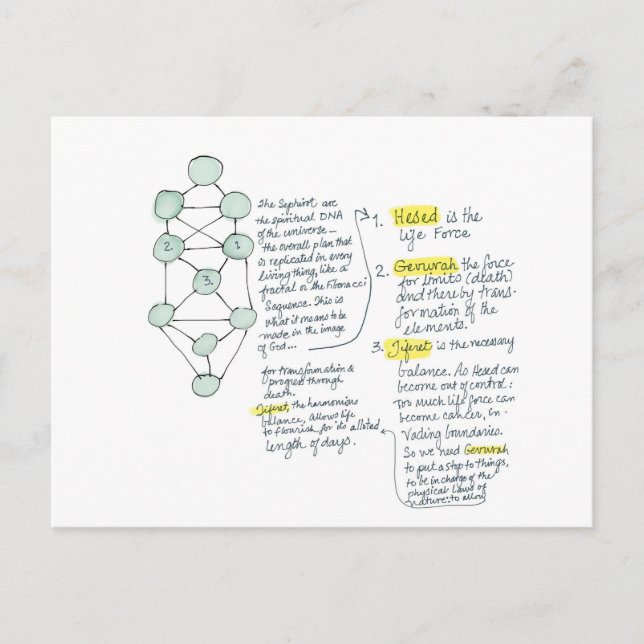 2.
1.
3.
The Sephirot are
the spiritual DNA
of the universe —
the overall plan that
is replicated in every
living thing, like a
fractal or the Fibonacci
Sequence. This is
what it means to be
made in the image
of God...
1. Hesed is the
life Force
2. Gevurah the force
for limits (death)
and thereby trans-
formation of the
elements.
3. Tiferet is the necessary
balance. As Hesed can
become out of control:
Too much life force can
become cancer, in-
vading boundaries.
So we need Gevurah
to put a stop to things,
to be in charge of the
physical laws of
nature: to allow
for transformation &
progress through
death.
Tiferet, the harmonious
balance, allows life
to flourish for its alloted
length of days.